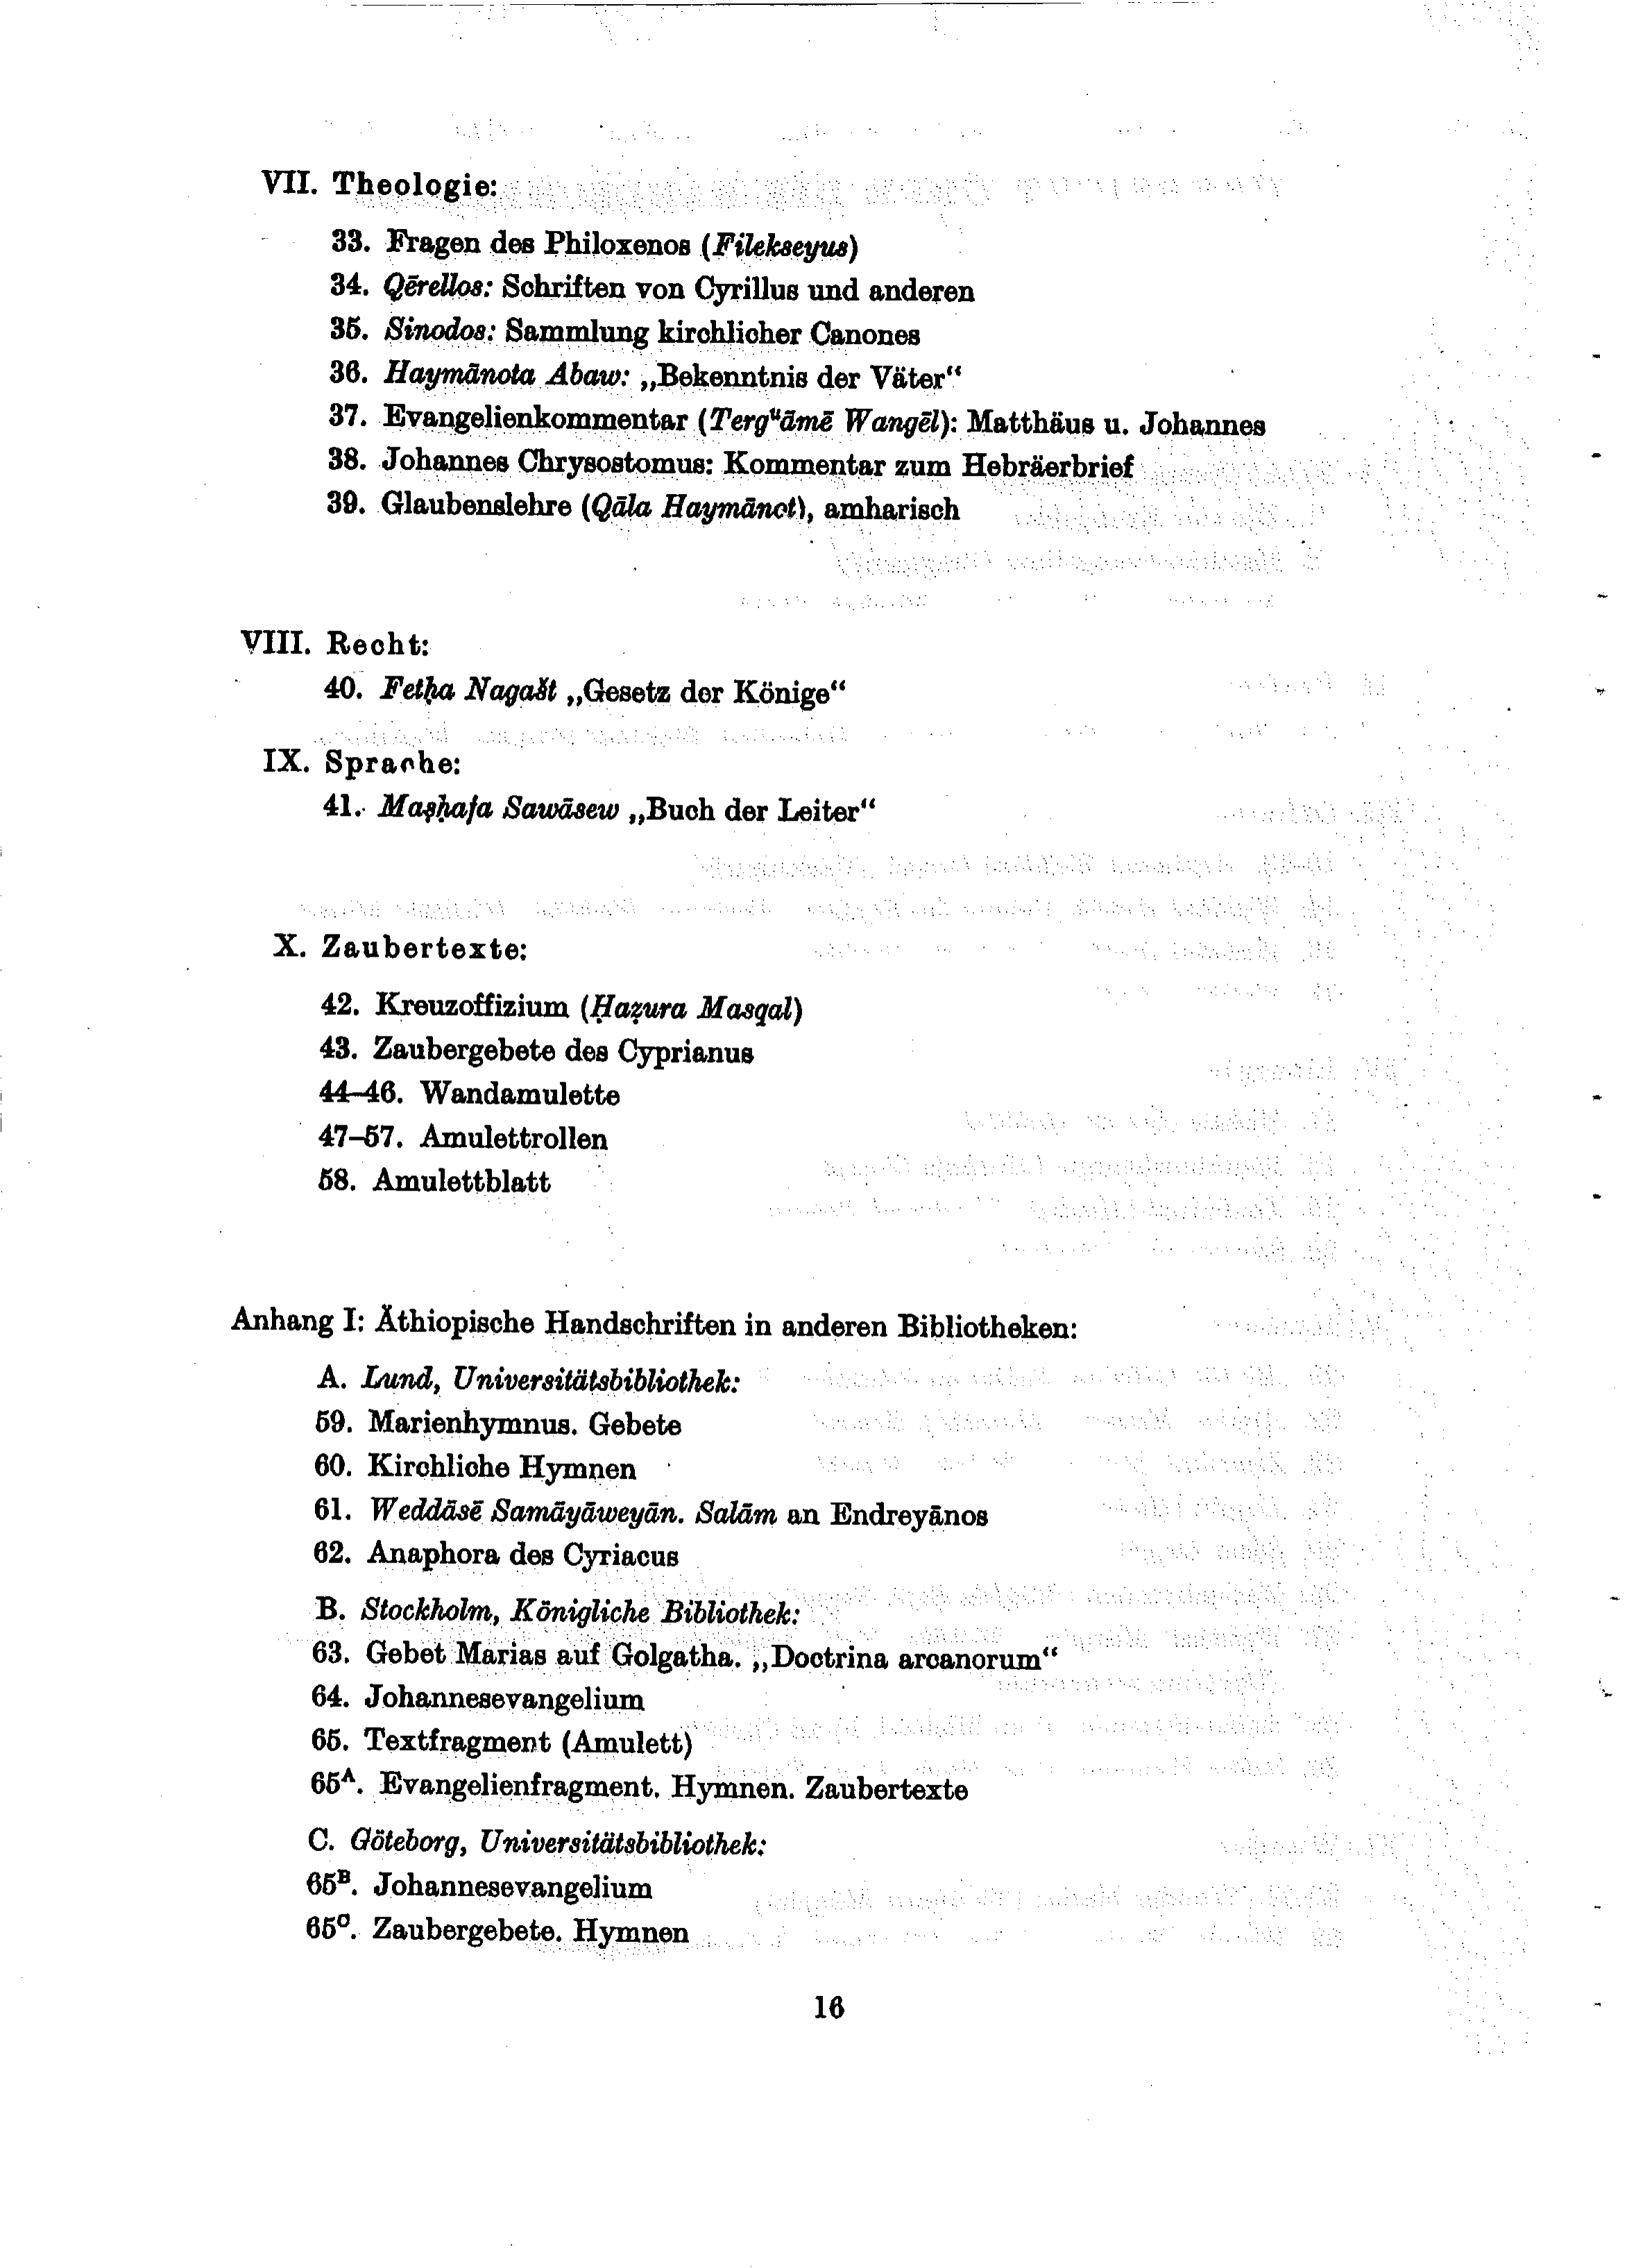 VII. Theologie:
33. Fragen des Philoxenos (Filekseyus)
34. Qērellos: Schriften von Cyrillus und anderen
35. Sinodos: Sammlung kirchlicher Canones
36. Haymānota Abaw: „Bekenntnis der Väter“
37. Evangelienkommentar (Tergᵘāmē Wangēl): Matthäus u. Johannes
38. Johannes Chrysostomus: Kommentar zum Hebräerbrief
39. Glaubenslehre (Qāla Haymānot), amharisch
VIII. Recht:
40. Fetḥa Nagašt „Gesetz der Könige“
IX. Sprache:
41. Maṣḥafa Sawāsew „Buch der Leiter“
X. Zaubertexte:
42. Kreuzoffizium (Ḥaẓura Masqal)
43. Zaubergebete des Cyprianus
44–46. Wandamulette
47–57. Amulettrollen
58. Amulettblatt
Anhang I: Äthiopische Handschriften in anderen Bibliotheken:
A. Lund, Universitätsbibliothek:
59. Marienhymnus. Gebete
60. Kirchliche Hymnen
61. Weddāsē Samāyāweyān. Salām an Endreyānos
62. Anaphora des Cyriacus
B. Stockholm, Königliche Bibliothek:
63. Gebet Marias auf Golgatha. „Doctrina arcanorum“
64. Johannesevangelium
65. Textfragment (Amulett)
65ᴬ. Evangelienfragment. Hymnen. Zaubertexte
C. Göteborg, Universitätsbibliothek:
65ᴮ. Johannesevangelium
65ᶜ. Zaubergebete. Hymnen
16